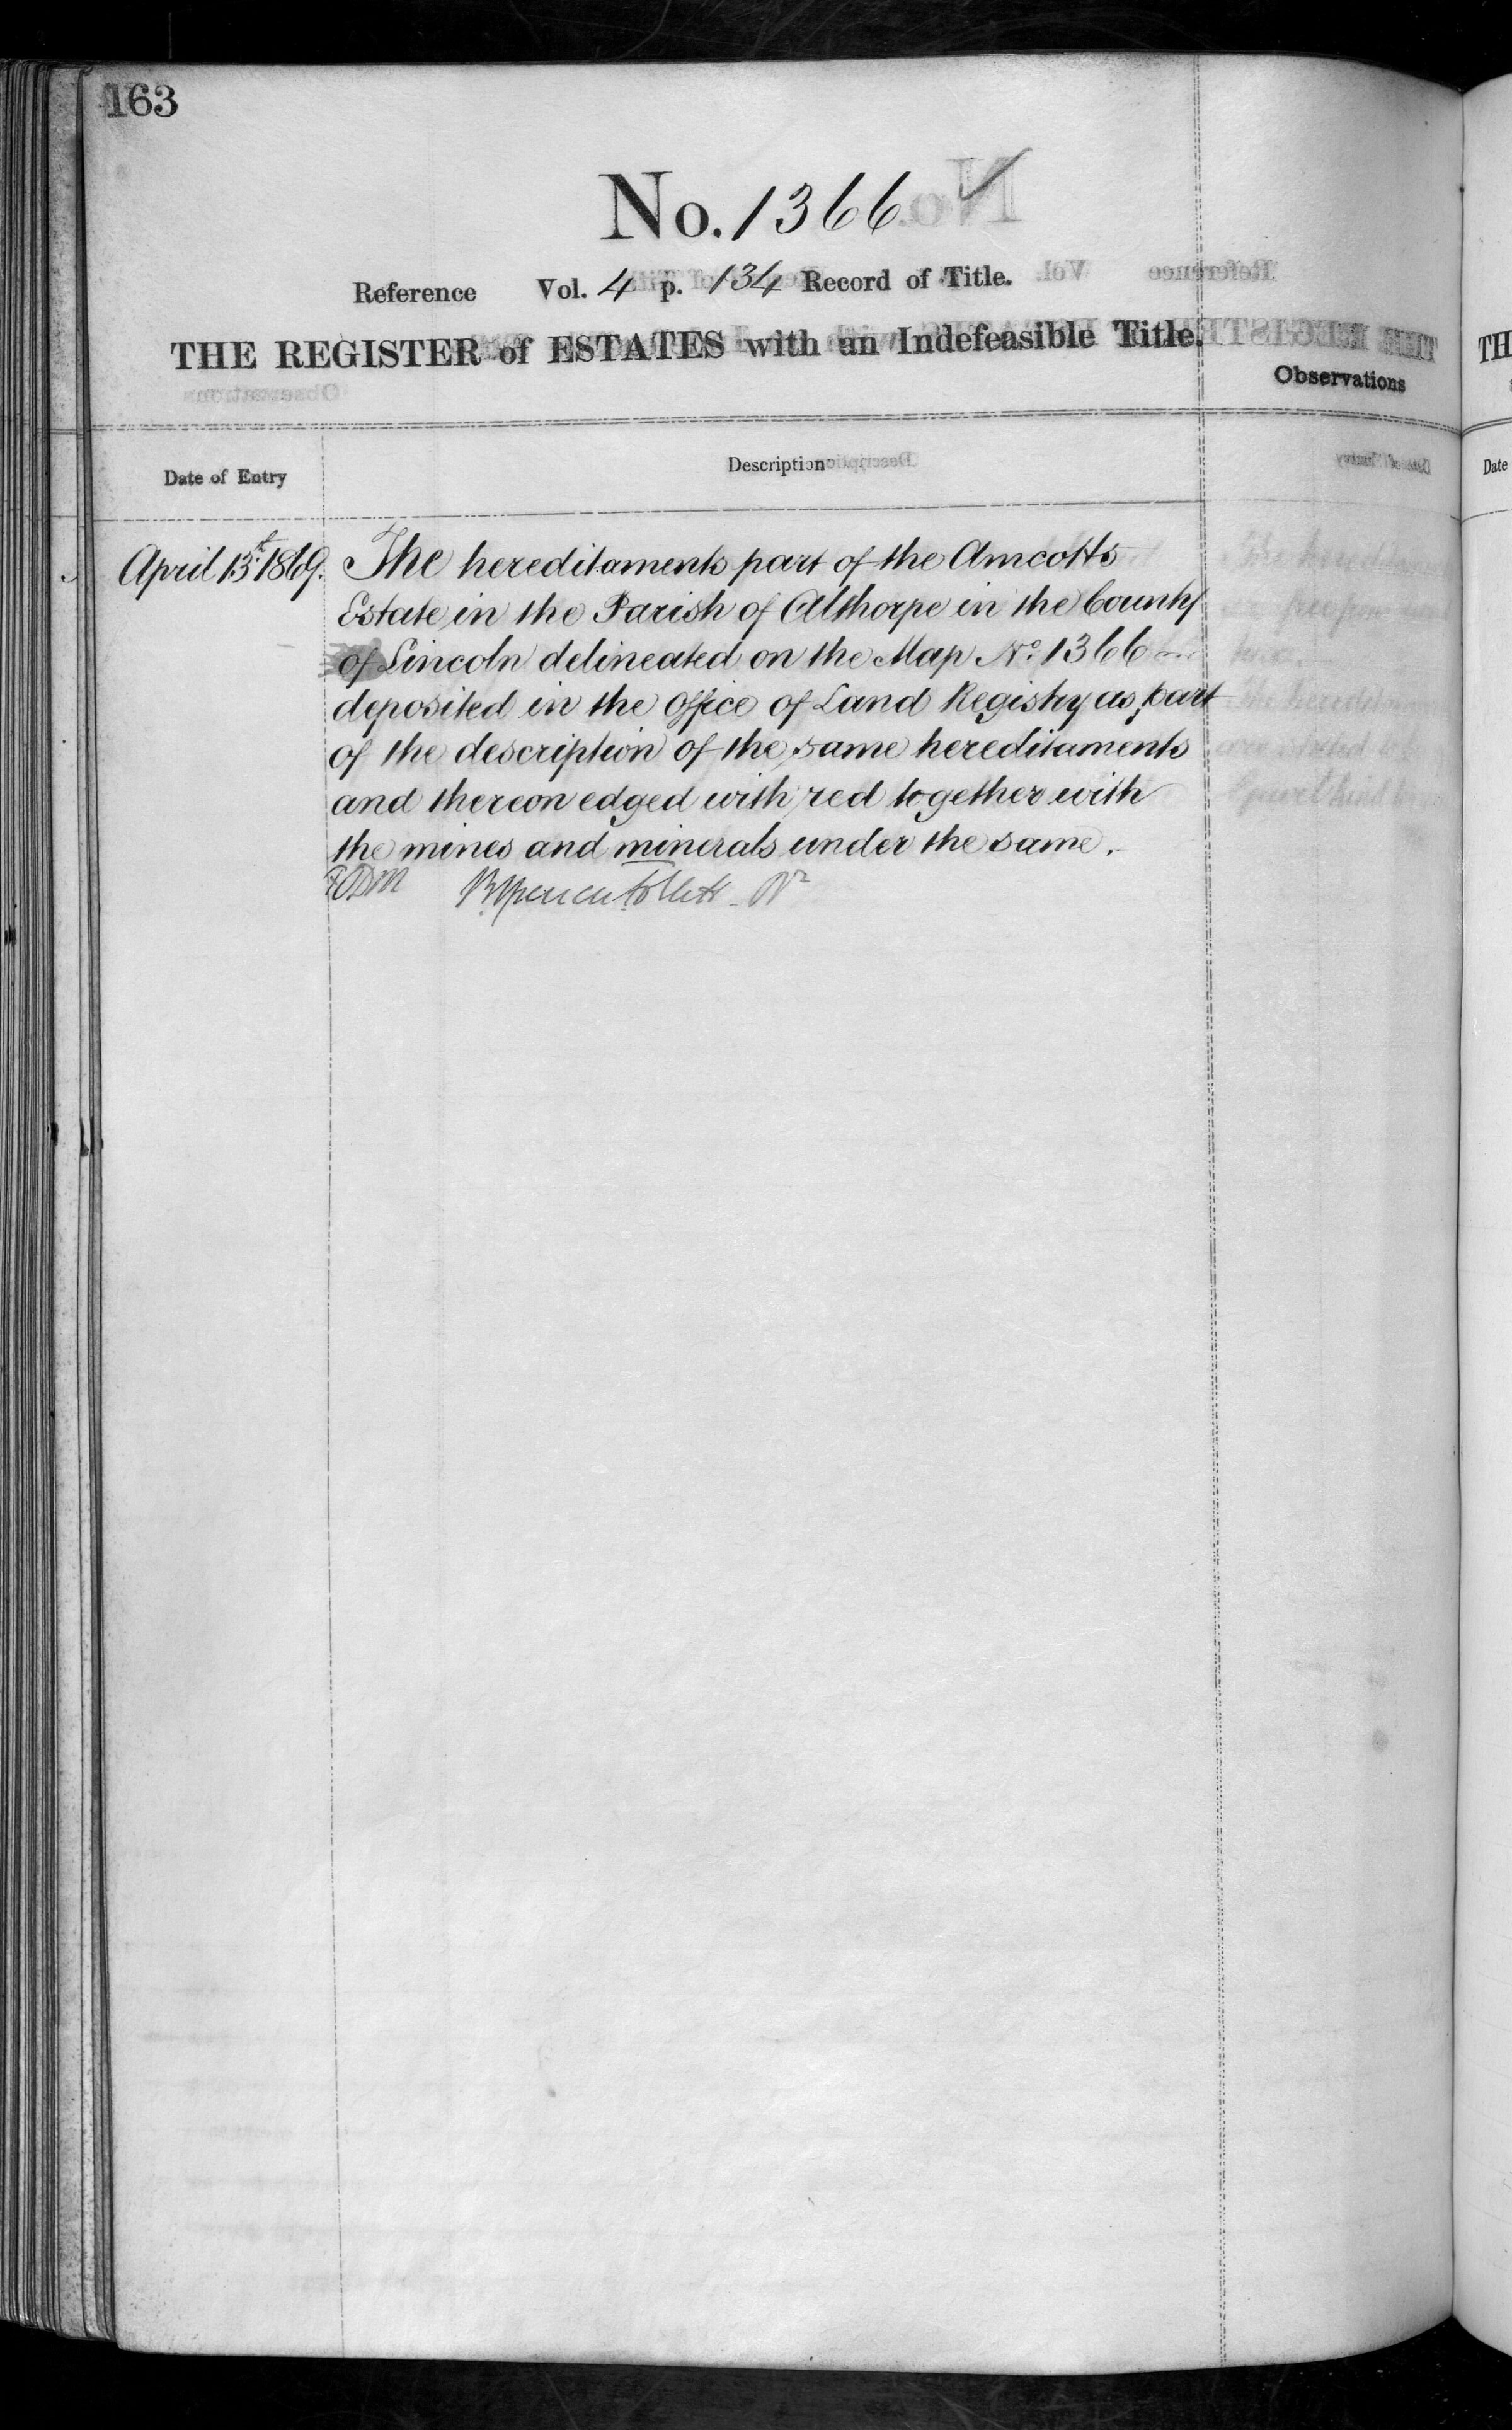 163
No. 1366
Reference Vol. 4 p. 134 Record of Title.
THE REGISTER of ESTATES with an Indefeasible Title.
Observations
Date of Entry
Description
April 13th 1869.
The hereditaments part of the Amcotts
Estate in the Parish of Althorpe in the County
of Lincoln delineated on the Map No. 1366
deposited in the office of Land Registry as part
of the description of the same hereditaments
and thereon edged with red together with
the mines and minerals under the same.
TH
Date